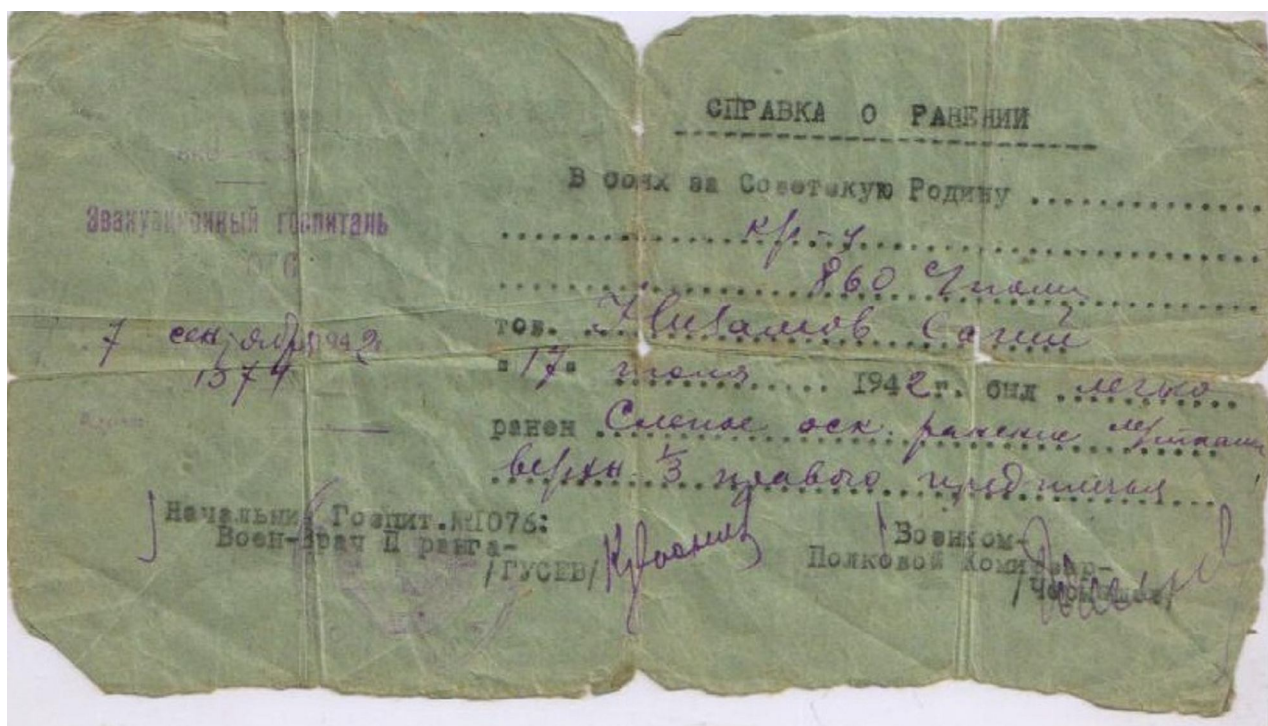 Эвакуационный госпиталь
7 сентября 1942
1574
СПРАВКА О РАНЕНИИ
В боях за Советскую Родину
кр-ц
860
тов. Низамов
"17" июля 1942г. был легко
ранен Слепое оск. ранение
верхн. 1/3 правого предплечья
Начальник Госпит.№1076:
Воен-Врач II ранга-
/ГУСЕВ/
Военком-
Полковой Комиссар-